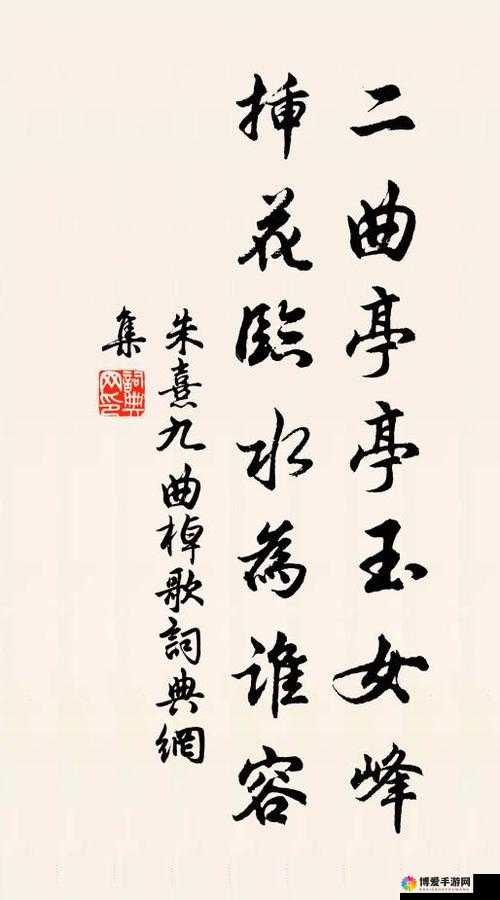 二曲亭亭玉女峰
揷花臨水為誰容
朱熹九曲棹歌詞典網
集
詞典網印
博爱手游网